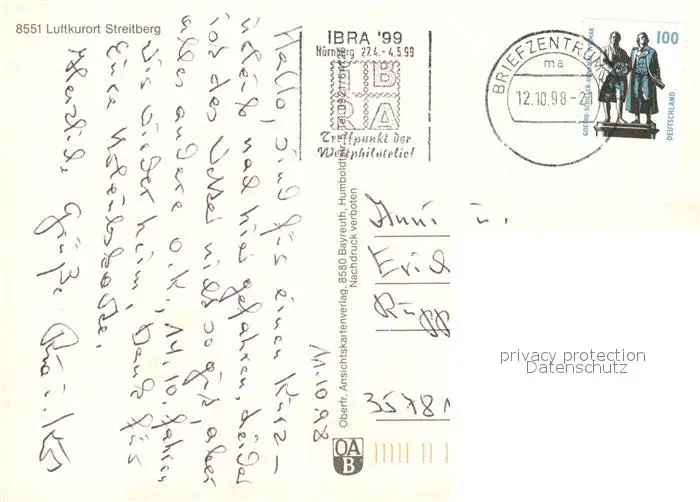 8551 Luftkurort Streitberg
Hallo, sind für einen Kurz-
urlaub nach hier gefahren, leider
ist das Wetter nicht so gut, aber
alles andere o.k., 14.10. fahren
wir wieder heim, Danke für
Eure Urlaubskarte.
Herzliche Grüße
11.10.98
Oberfr. Ansichtskartenverlag, 8580 Bayreuth, Humboldtstr.
Nachdruck verboten
OA
B
IBRA '99
Nürnberg 27.4.-4.5.99
IB
RA
Treffpunkt der
Weltphilatelie!
BRIEFZENTRUM
ma
12.10.98-21
GOETHE-SCHILLER-DENKMAL WEIMAR
100
DEUTSCHLAND
Anni u.
Erich
Rupp
3578
privacy protection
Datenschutz